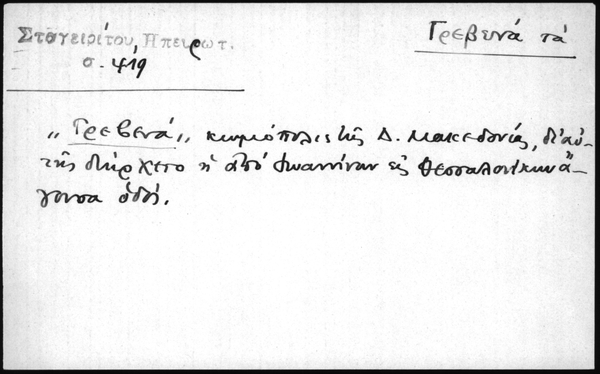 Σταγειρίτου, Ηπειρωτ.
σ. 419
Γρεβενά τά
„Γρεβενά„ κωμόπολις τῆς Δ. Μακεδονίας, δι' αὐ-
τῆς διήρχετο ἡ ἀπό Ἰωαννίνων εἰς Θεσσαλονίκην ἄ-
γουσα ὁδός.